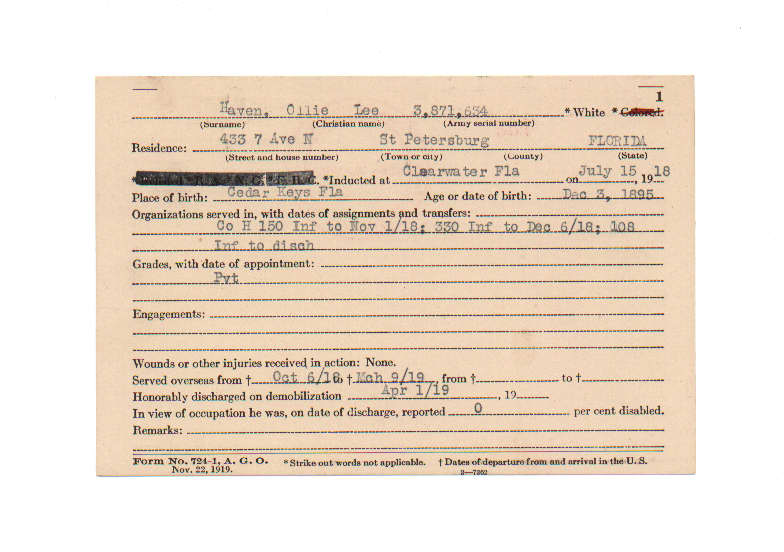 1
Haven, Ollie Lee 3,871,634 * White * Colored.
(Surname) (Christian name) (Army serial number)
Residence: 433 7 Ave N St Petersburg FLORIDA
(Street and house number) (Town or city) (County) (State)
* N. G. * E. R. C. *Inducted at Clearwater Fla on July 15, 1918
Place of birth: Cedar Keys Fla Age or date of birth: Dec 3, 1895
Organizations served in, with dates of assignments and transfers:
Co H 150 Inf to Nov 1/18; 330 Inf to Dec 6/18; 108
Inf to disch
Grades, with date of appointment:
Pvt
Engagements:
Wounds or other injuries received in action: None.
Served overseas from † Oct 6/18 to † Mch 9/19, from † to †
Honorably discharged on demobilization Apr 1/19, 19
In view of occupation he was, on date of discharge, reported 0 per cent disabled.
Remarks:
Form No. 724-1, A. G. O. *Strike out words not applicable. † Dates of departure from and arrival in the U. S.
Nov. 22, 1919. 3—7352